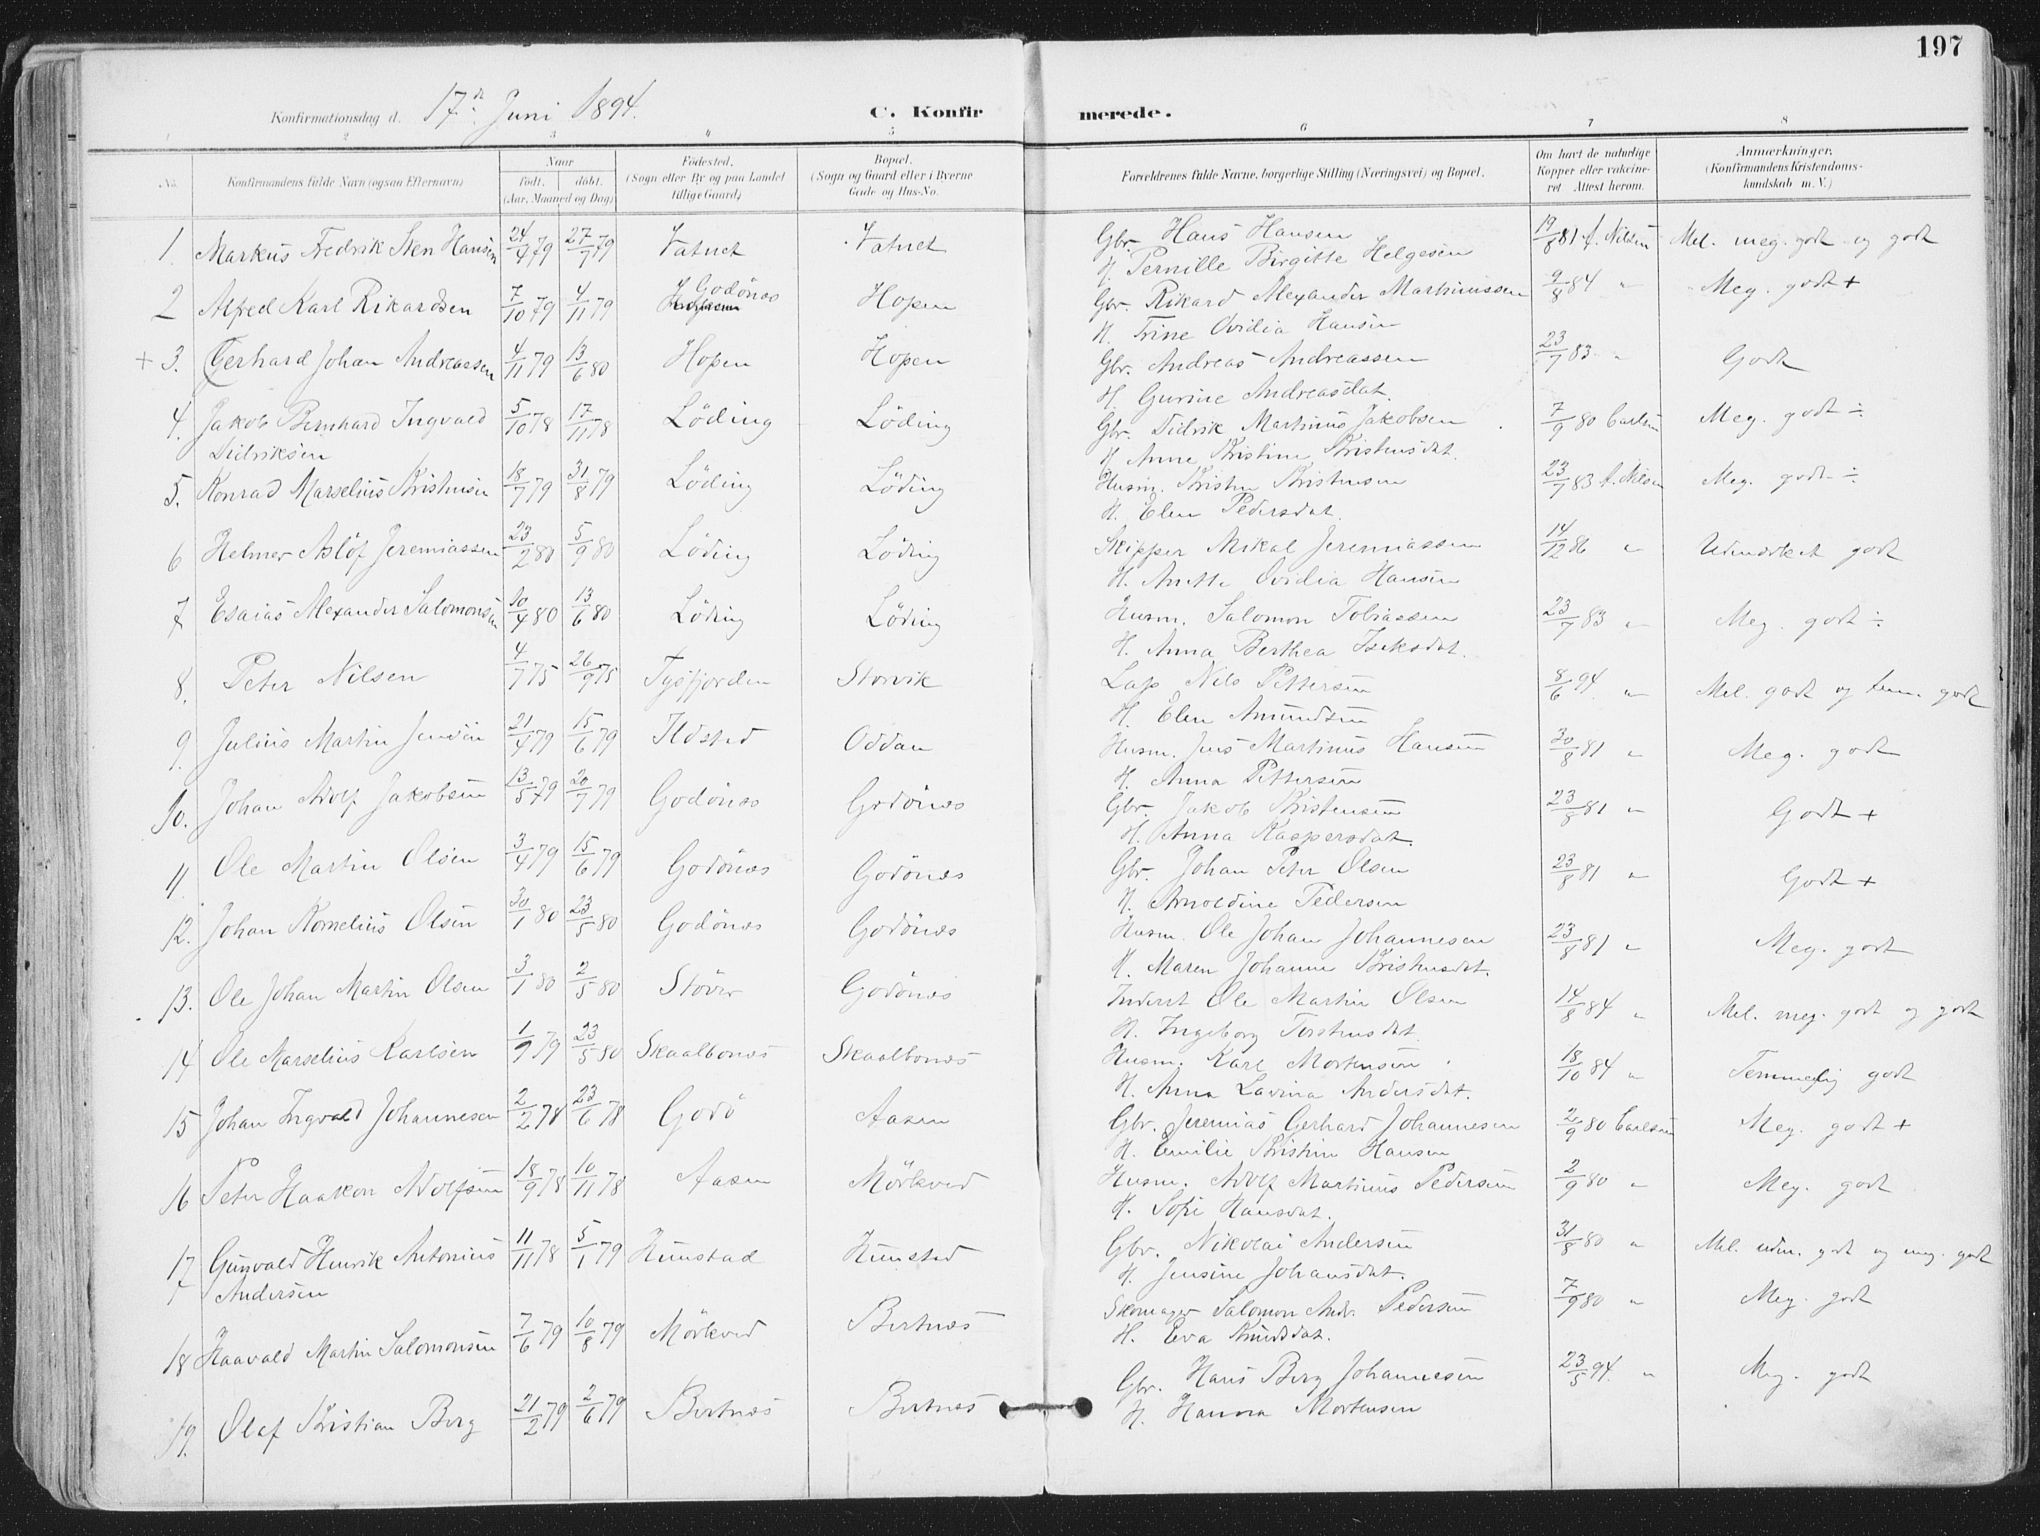 197
Konfirmationsdag d. 17de Juni 1894.
C. Konfirmerede.
1 2 3 4 5 6 7 8
No. Konfirmandens fulde Navn (ogsaa Efternavn) Naar født. døbt. (Aar, Maaned og Dag) Fødested. (Sogn eller By og paa Landet tillige Gaard) Bopæl. (Sogn og Gaard eller i Byerne Gade og Hus-No. Forældrenes fulde Navne, borgerlige Stilling (Næringsvei) og Bopæl. Om havt de naturlige Kopper eller vakcineret Attest herom. Anmærkninger. (Konfirmandens Kristendomskundskab m. V.)
1. Markus Fredrik Sten Hansen 24/4 79 27/7 79 Vatnet Vatnet Gbr. Hans Hansen 19/8 81 A. Nilsen Mel. meg. godt og godt
H. Pernille Birgitte Helgesen
2 Alfred Karl Rikardsen 7/10 79 4/11 79 Godönes Hopen Gbr. Rikard Alexander Martinussen 9/8 84 " Meg. godt +
H. Trine Ovidia Hansen
+ 3. Gerhard Johan Andreassen 4/11 79 13/6 80 Hopen Hopen Gbr. Andreas Andreassen 23/7 83 " Godt
H. Gurine Andreasdat.
4. Jakob Bernhard Ingvald Didriksen 5/10 78 17/11 78 Löding Löding Gbr. Didrik Martinus Jakobsen 7/9 80 Carlsen Meg. godt ÷
H. Anne Kristine Kristensdat.
5. Konrad Marselius Kristensen 18/7 79 31/8 79 Löding Löding Husm. Kristen Kristensen 23/7 83 A. Nilsen Meg. godt ÷
H. Elen Pedersdat.
6 Helmer Aslöf Jeremiassen 23/2 80 5/9 80 Löding Löding Skipper Mikal Jeremiassen 14/12 86 " Udmærket godt
H. Anette Ovidia Hansen
7 Esaias Alexander Salomonsen 10/4 80 13/6 80 Löding Löding Husm. Salomon Tobiassen 23/7 83 " Meg. godt ÷
H. Anna Berthea Isaksdat.
8. Peter Nilsen 4/7 75 26/9 75 Tysfjorden Storvik Lap Nils Pettersen 8/6 94. " Mel. godt og tem. godt
H. Elen Amundsen
9. Julius Martin Jensen 21/4 79 15/6 79 Ildsted Oddan Husm. Jens Martinus Hansen 30/8 81 " Meg. godt
H. Anna Pettersen
10. Johan Adolf Jakobsen 13/5 79 20/7 79 Godönes Godönes Gbr. Jakob Kristensen 23/8 81 " Godt +
H. Anna Kaspersdat.
11. Ole Martin Olsen 3/4 79 15/6 79 Godönes Godönes Gbr. Johan Peter Olsen 23/8 81 " Godt +
H. Arnoldine Pedersen
12. Johan Kornelius Olsen 30/1 80 23/5 80 Godönes Godönes Husm. Ole Johan Johannesen 23/8 81 " Meg. godt
H. Maren Johanne Kristensdat.
13. Ole Johan Martin Olsen 3/1 80 2/5 80 Stöver Godönes Inderst Ole Martin Olsen 14/8 84 " Mel. meg. godt og godt
H. Ingeborg Torstensdat.
14 Ole Marselius Karlsen 1/9 79 23/5 80 Skaalbones Skaalbones Husm. Karl Mortensen 18/10 84 " Temmelig godt
H. Anna Lavina Andersdat.
15 Johan Ingvald Johannesen 2/2 78 23/6 78 Godö Aasen Gbr. Jeremias Gerhard Johannesen 2/9 80 Carlsen Meg. godt +
H. Emilie Kristine Hansen
16 Peter Haakon Adolfsen 18/9 78 10/11 78 Aasen Mörkved Husm. Adolf Martinus Pedersen 2/9 80 " Meg. godt
H. Sofie Hansdat.
17 Gunvald Henrik Antonius Andersen 11/11 78 5/1 79 Hunstad Hunstad Gbr. Nikolai Andersen 31/8 80 " Mel. udm. godt og meg. godt
H. Jensine Johansdat.
18 Haavald Martin Salomonsen 7/6 79 10/8 79 Mörkved Bertnes Skomager Salomon Andr. Pedersen 7/9 80 " Meg. godt
H. Eva Knudsdat.
19. Olaf Kristian Berg 21/2 79 2/6 79 Bertnes Bertnes Gbr. Hans Berg Johannesen 23/5 94. " Meg. godt
H. Hanna Mortensen